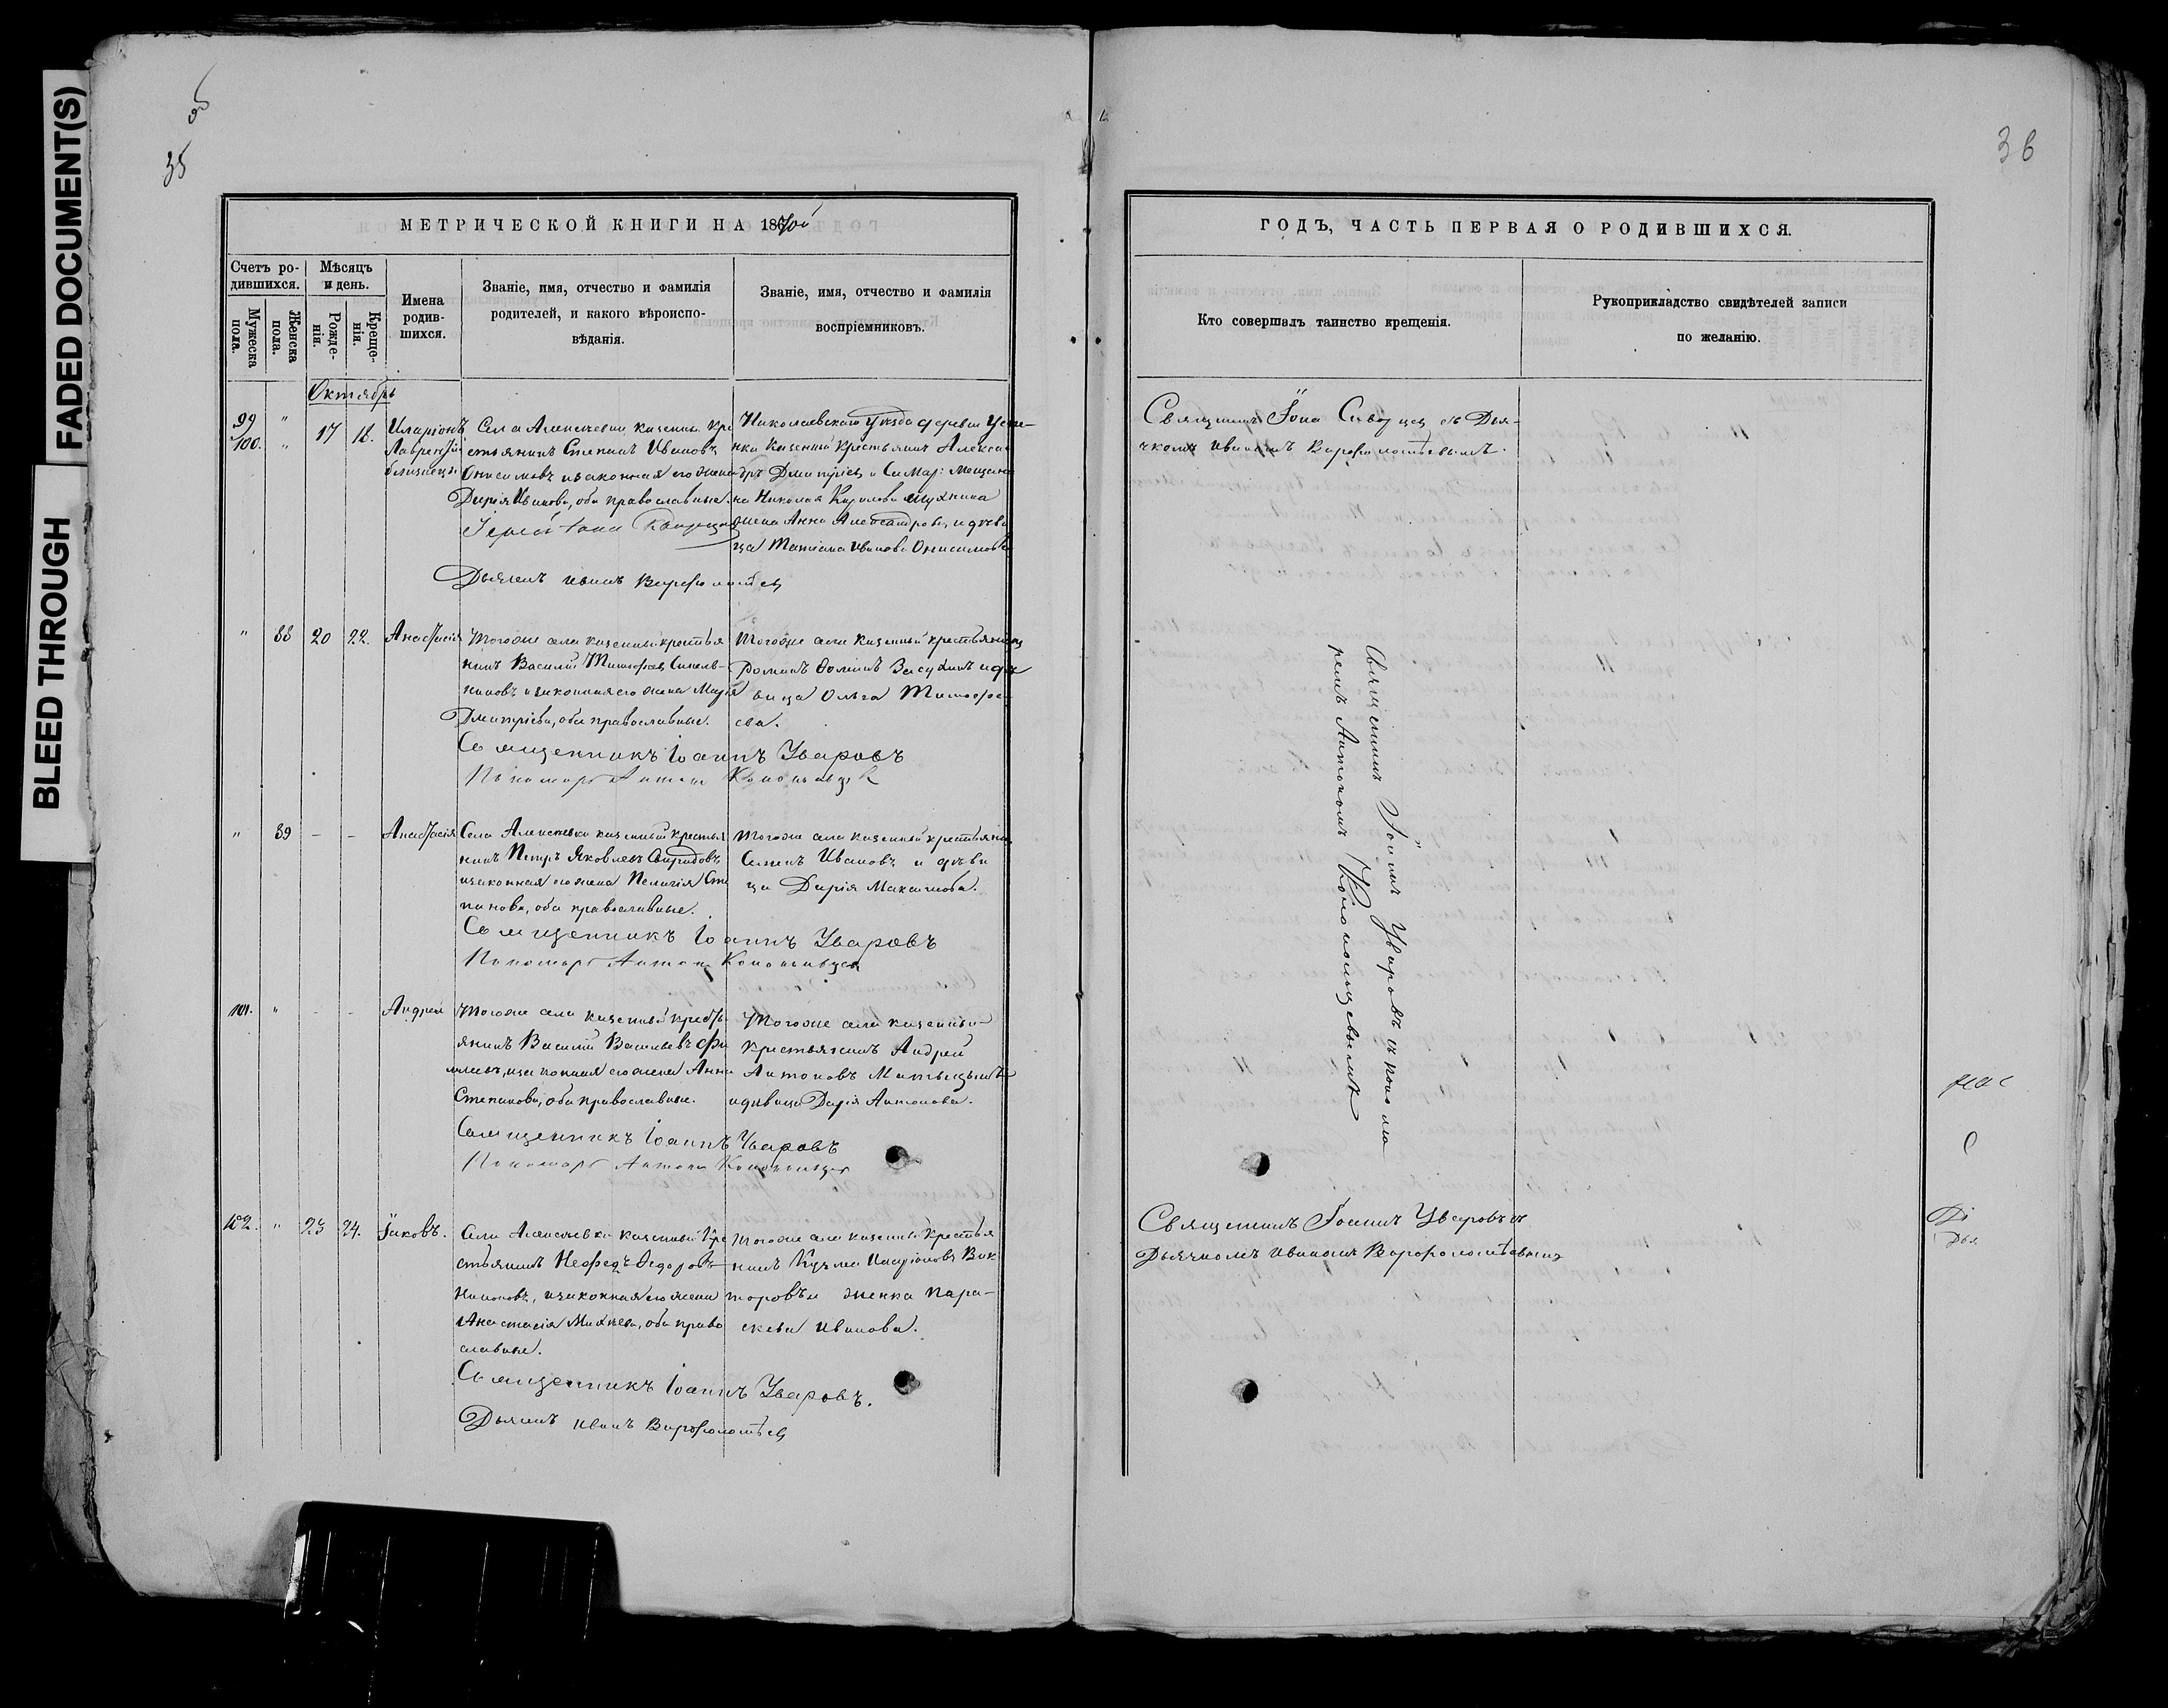 BLEED THROUGH
FADED DOCUMENT(S)
35
36
МЕТРИЧЕСКОЙ КНИГИ НА 1870й
Счетъ ро-
дившихся.
Мужеска
пола.
Женска
пола.
Мѣсяцъ
и день.
Рожде-
нія.
Креще-
нія.
Имена
родив-
шихся.
Званіе, имя, отчество и фамилія
родителей, и какого вѣроиспо-
вѣданія.
Званіе, имя, отчество и фамилія
воспріемниковъ.
Октябрь
99
100. 17 18.
Иларіонъ
Лаврентій
близнецы
Села Алексѣевки казенный кре
стьянинъ Степанъ Ивановъ
Онисимовъ и законная его жена
Дарія Иванова, оба православные.
Іерей Іона
Дьячекъ Иванъ Варфоломѣевъ
Николаевскаго уѣзда деревни
казенный крестьянинъ Алексан
дръ Дмитріевъ и Самар: мещани
на Николая Кирилова
жена Анна Александрова, и дѣви
ца Матіана Иванова Онисимова
88 20 22. Анастасія
Тогоже села казенный крестья
нинъ Василій Тимофѣевъ Синель-
никовъ и законная его жена Марія
Дмитріева, оба православные.
Священникъ Іоаннъ Уваровъ
Пономарь Антонъ
Тогоже села казенный крестьянинъ
Романъ Ѳоминъ Засухинъ и дѣ
вица Ольга Тимофѣ
ева.
89 - - Анастасія
Села Алексѣевки казенный крестья
нинъ Петръ Яковлевъ Свиридовъ
и законная его жена Пелагія Сте
панова, оба православные.
Священникъ Іоаннъ Уваровъ
Пономарь Антонъ
Тогоже села казенный крестьянинъ
Семенъ Ивановъ и дѣви
ца Дарія Максимова.
101. - - Андрей
Тогоже села казенный кресть
янинъ Василій Васильевъ
и законная его жена Анна
Степанова, оба православные.
Священникъ Іоаннъ Уваровъ
Пономарь Антонъ
Тогоже села казенный
крестьянинъ Андрей
Антоновъ
и дѣвица Дарія Антонова.
102. 23 24. Іаковъ.
Села Алексѣевки казенный кре
стьянинъ Нефедъ Ѳедоровъ
и законная его жена
Анастасія Михѣева, оба право
славные.
Священникъ Іоаннъ Уваровъ.
Дьячекъ Иванъ Варфоломѣевъ
Тогоже села казенный крестья
нинъ Кузма Иларіоновъ Вик
торовъ и женка Пара-
скева Иванова.
ГОДЪ, ЧАСТЬ ПЕРВАЯ О РОДИВШИХСЯ.
Кто совершалъ таинство крещенія.
Рукоприкладство свидѣтелей записи
по желанію.
Священникъ Іона съ Дья-
чкомъ Иваномъ Варфоломѣевымъ.
Священникъ Іоаннъ Уваровъ съ поно ма
ремъ Антономъ
Священникъ Іоаннъ Уваровъ съ
Дьячкомъ Иваномъ Варфоломѣевымъ